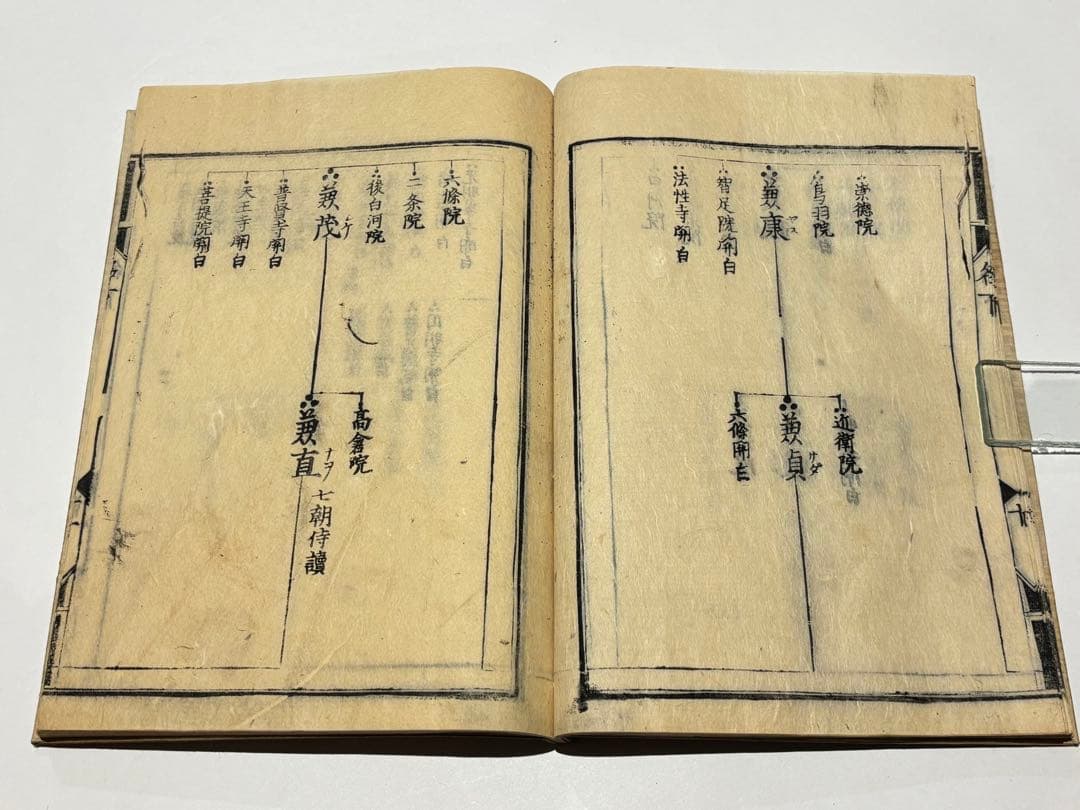 崇德院
鳥羽院
兼康 ヤス
智足院關白
法性寺關白
近衛院
兼貞 サダ
六條關白
六條院
二条院
後白河院
兼茂 シゲ
普賢寺關白
天王寺關白
菩提院關白
高倉院
兼直 ナヲ 七朝侍讀